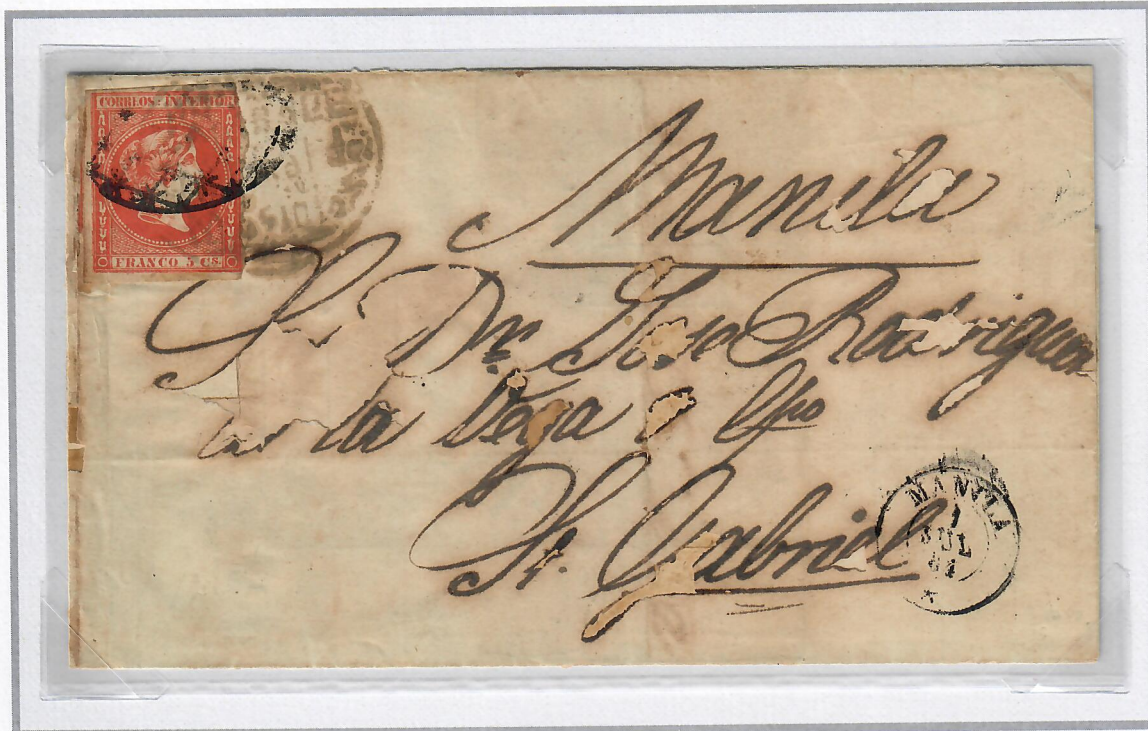 CORREOS INTERIOR
FRANCO 5 CS.
Manila
Sr Dn Jose Rodriguez
la Vega
Sn. Gabriel
MANILA
1
JUL